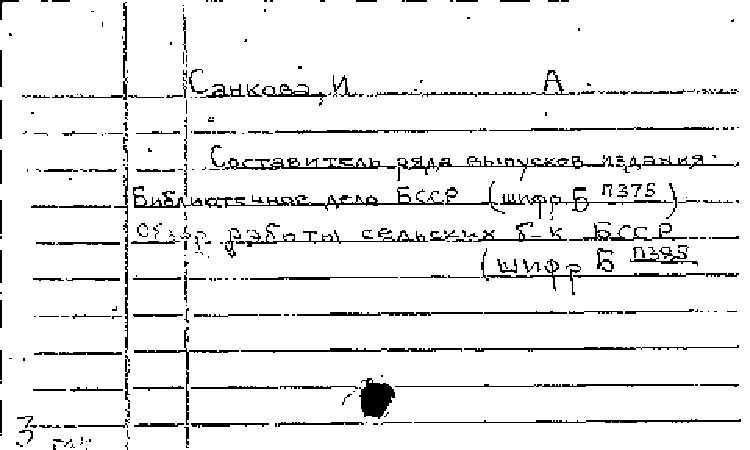 Санкова, И А.
Составитель ряда выпусков издания
Библиотечное дело БССР (шифр Б П375)
Обзор работы сельских б-к БССР
(шифр Б П385
3